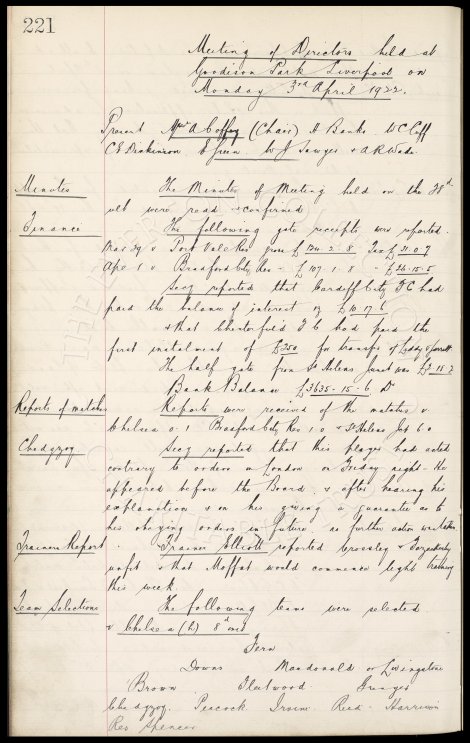 221
Meeting of Directors held at
Goodison Park Liverpool on
Monday 3rd April 1922.
Present Messrs A Coffey (Chair) H Banks. W C Cuff
C E Dickinson E Green W J Sawyer & A R Wade
Minutes
The Minutes of Meeting held on the 28th
ult were read & confirmed
Finance
The following gate receipts were reported.
Mar 29 v Port Vale Res gross £124. 2. 8 Tax £21. 0. 7
Apl 1 v Bradford City Res - £107. 1. 8 - £26. 15. 5
Secy reported that Cardiff City FC had
paid the balance of interest of £10. 7. 6
& that Chesterfield F C had paid the
first instalment of £250 for transfer of
The half gate from St Helens Junct was £3. 15. 7
Bank Balance £3635 - 15 - 6 Dr
Reports of matches
Reports were received of the matches v
Chelsea 0. 1 Bradford City Res 1. 0 & St Helens Jct 6. 0
Chedgzoy
Secy reported that this player had acted
contrary to orders in London on Friday night - He
appeared before the Board & after hearing his
explanation & on his giving a guarantee as to
his obeying orders in future no further action was taken
Trainers Report
Trainer Elliott reported Crossley &
unfit & that Moffat would commence light training
this week.
Team Selections
The following teams were selected
v Chelsea (h) 8th inst
Fern
Downs Macdonald or Livingstone
Brown Fleetwood Grenyer
Chedgzoy. Peacock Irvine Reid Harrison
Res Spencer